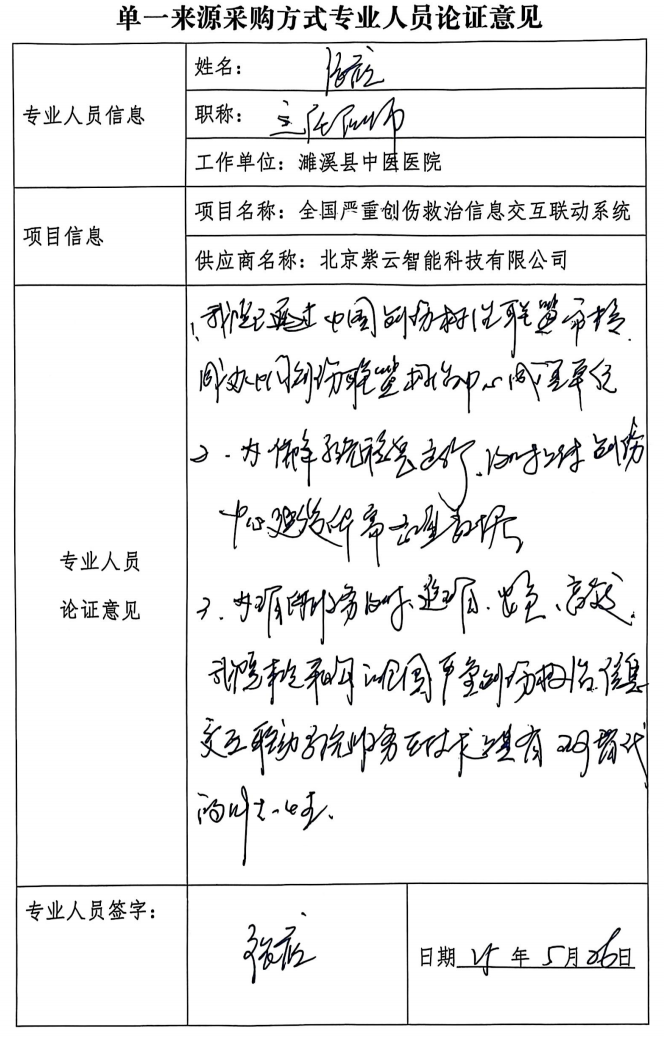 单一来源采购方式专业人员论证意见
专业人员信息
姓名：
职称：主任医师
工作单位：濉溪县中医医院
项目信息
项目名称：全国严重创伤救治信息交互联动系统
供应商名称：北京紫云智能科技有限公司
专业人员
论证意见
1、我院已通过中国创伤救治联盟审核，
成为中国创伤联盟救治中心成员单位
2、为保障系统稳定运行、及时上传创伤
中心建设所需数据
3、为确保服务及时、
我院本次采购的全国严重创伤救治信息
交互联动系统服务在技术上具有不可替代
的唯一性。
专业人员签字：
日期 25 年 5月26日